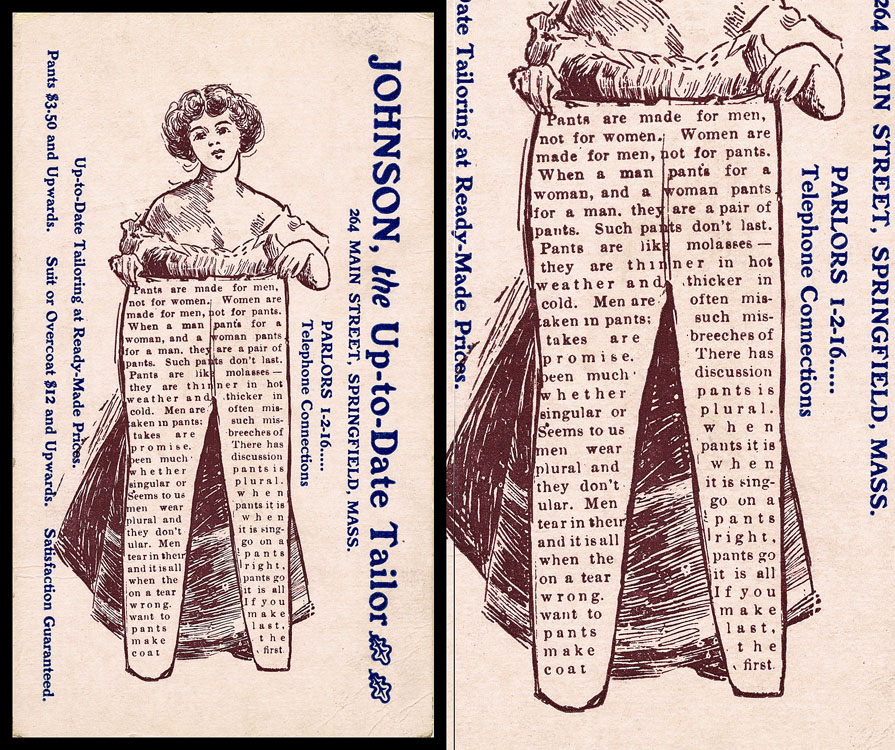 JOHNSON, the Up-to-Date Tailor
264 MAIN STREET, SPRINGFIELD, MASS.
PARLORS 1-2-16.....
Telephone Connections
Pants are made for men,
not for women. Women are
made for men, not for pants.
When a man pants for a
woman, and a woman pants
for a man. they are a pair of
pants. Such pants don't last.
Pants are like molasses —
they are thinner in hot
weather and thicker in
cold. Men are often mis-
taken in pants; such mis-
takes are breeches of
promise. There has
been much discussion
whether pants is
singular or plural.
Seems to us when
men wear pants it is
plural and when
they don't it is sing-
ular. Men go on a
tear in their pants
and it is all right,
when the pants go
on a tear it is all
wrong. If you
want to make
pants last,
make the
coat first.
Up-to-Date Tailoring at Ready-Made Prices.
Pants $3.50 and Upwards. Suit or Overcoat $12 and Upwards. Satisfaction Guaranteed.
264 MAIN STREET, SPRINGFIELD, MASS.
PARLORS 1-2-16.....
Telephone Connections
Pants are made for men,
not for women. Women are
made for men, not for pants.
When a man pants for a
woman, and a woman pants
for a man. they are a pair of
pants. Such pants don't last.
Pants are like molasses —
they are thinner in hot
weather and thicker in
cold. Men are often mis-
taken in pants; such mis-
takes are breeches of
promise. There has
been much discussion
whether pants is
singular or plural.
Seems to us when
men wear pants it is
plural and when
they don't it is sing-
ular. Men go on a
tear in their pants
and it is all right,
when the pants go
on a tear it is all
wrong. If you
want to make
pants last,
make the
coat first.
Date Tailoring at Ready-Made Prices.